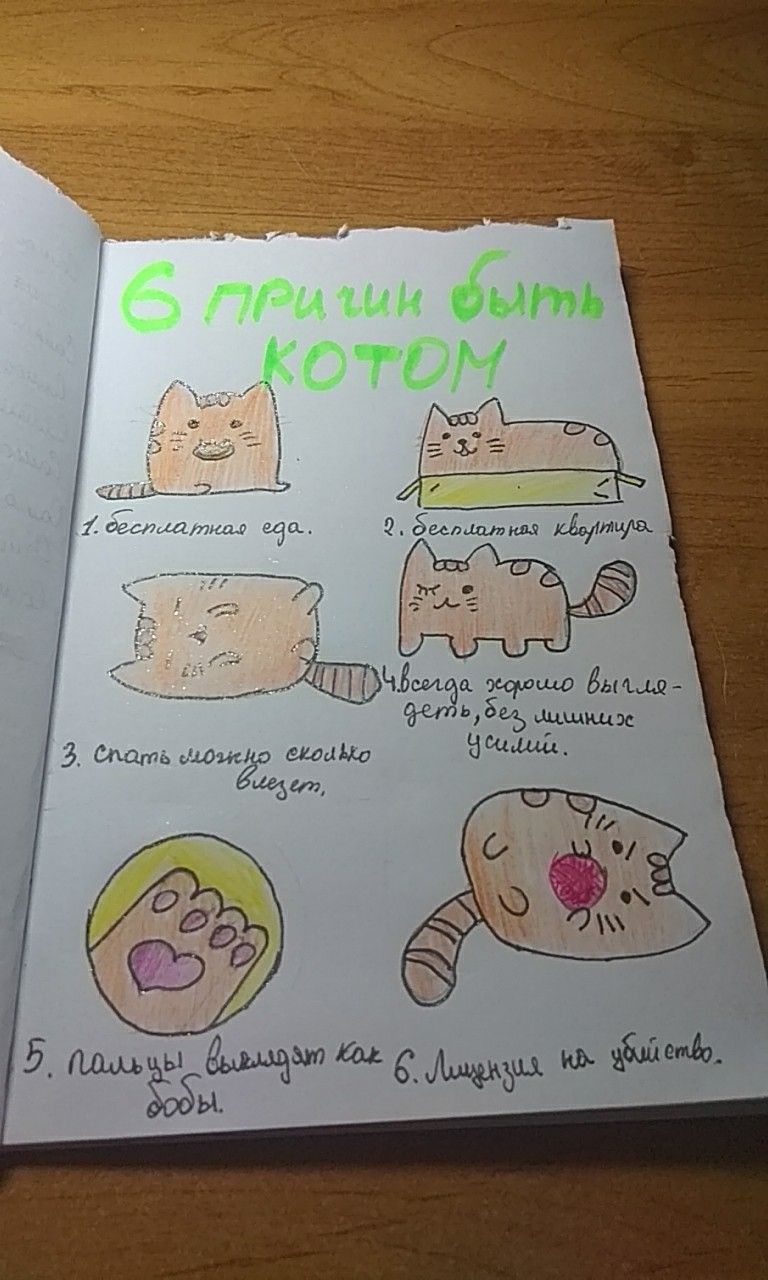 6 причин быть
КОТОМ
1. бесплатная еда.
2. бесплатная квартира
3. спать можно сколько
влезет.
4. всегда хорошо выгля-
деть, без лишних
усилий.
5. пальцы выглядят как
бобы.
6. Лицензия на убийство.